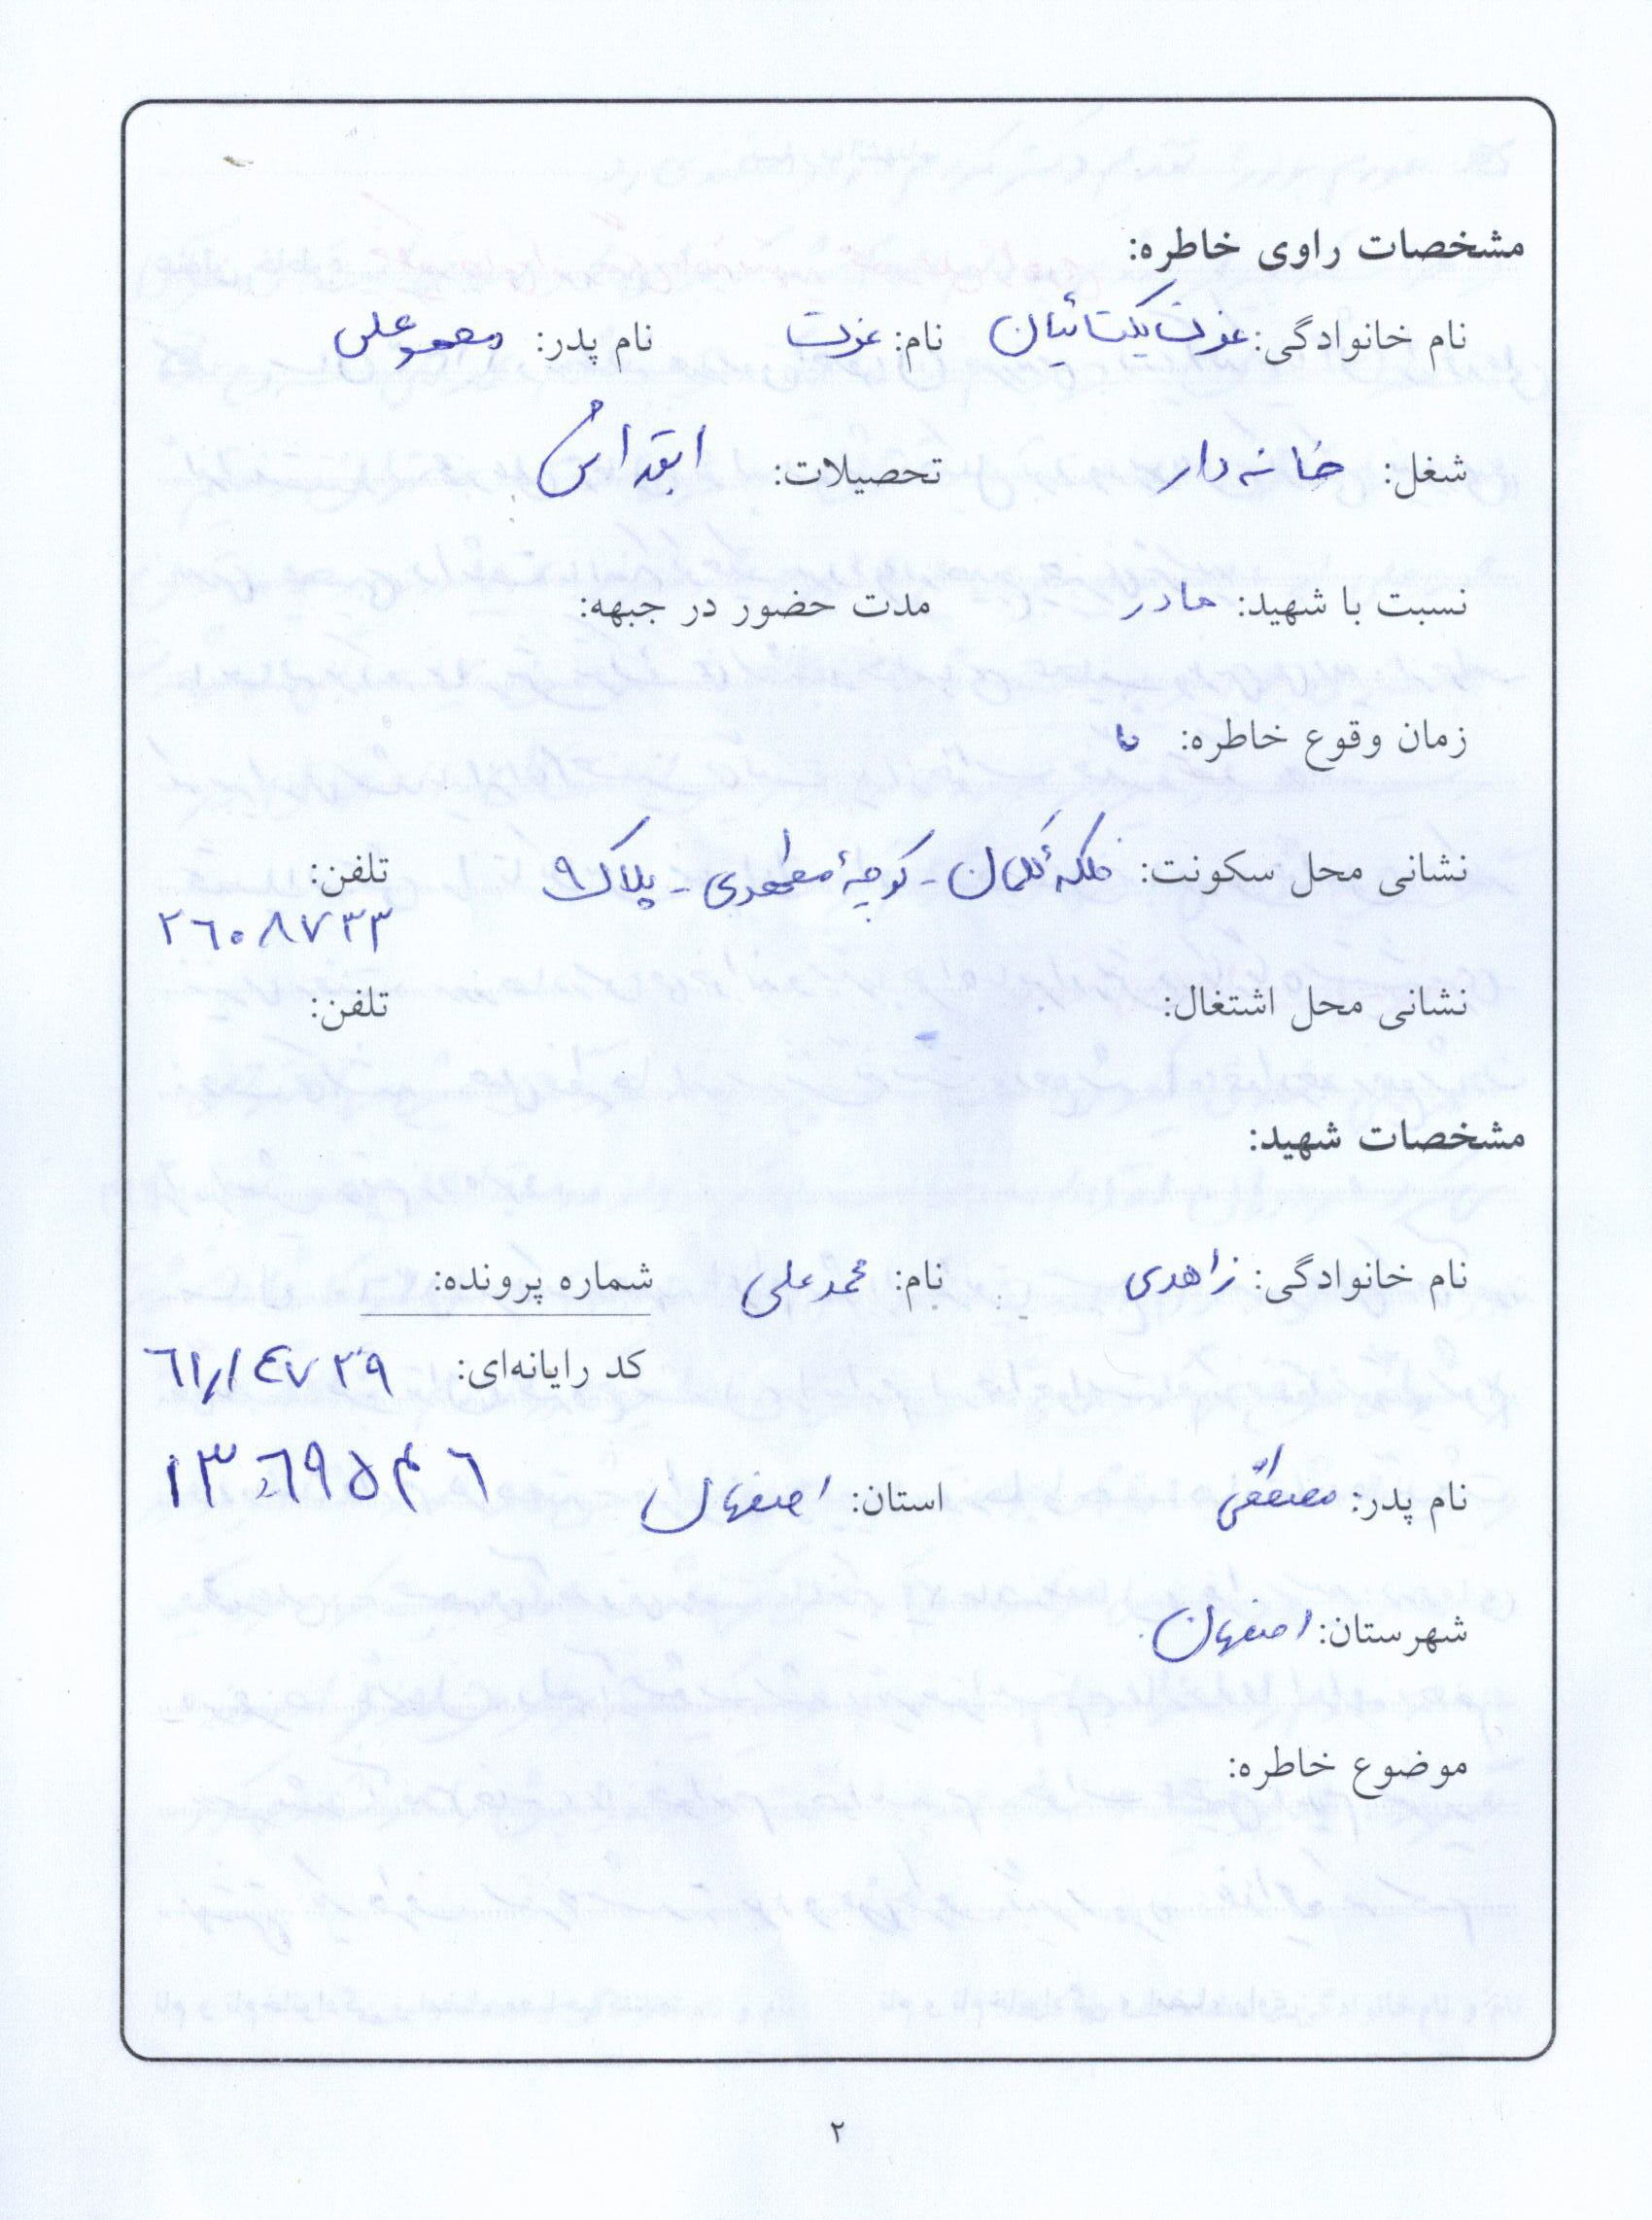 مشخصات راوی خاطره:
نام خانوادگی: عزت یکتائیان نام: عزت نام پدر: محمدعلی
شغل: خانه دار تحصیلات: ابتدائی
نسبت با شهید: مادر مدت حضور در جبهه:
زمان وقوع خاطره:
نشانی محل سکونت: فلکهٔ - کوچهٔ - پلاک ۹ تلفن:
۲۶۰۸۷۳۳
نشانی محل اشتغال: تلفن:
مشخصات شهید:
نام خانوادگی: زاهدی نام: محمدعلی شماره پرونده:
کد رایانه‌ای: ۶۱/۱۴۷۲۹
نام پدر: مصطفی استان: اصفهان ۱۳۰۶۹۵۴۶
شهرستان: اصفهان
موضوع خاطره:
۲